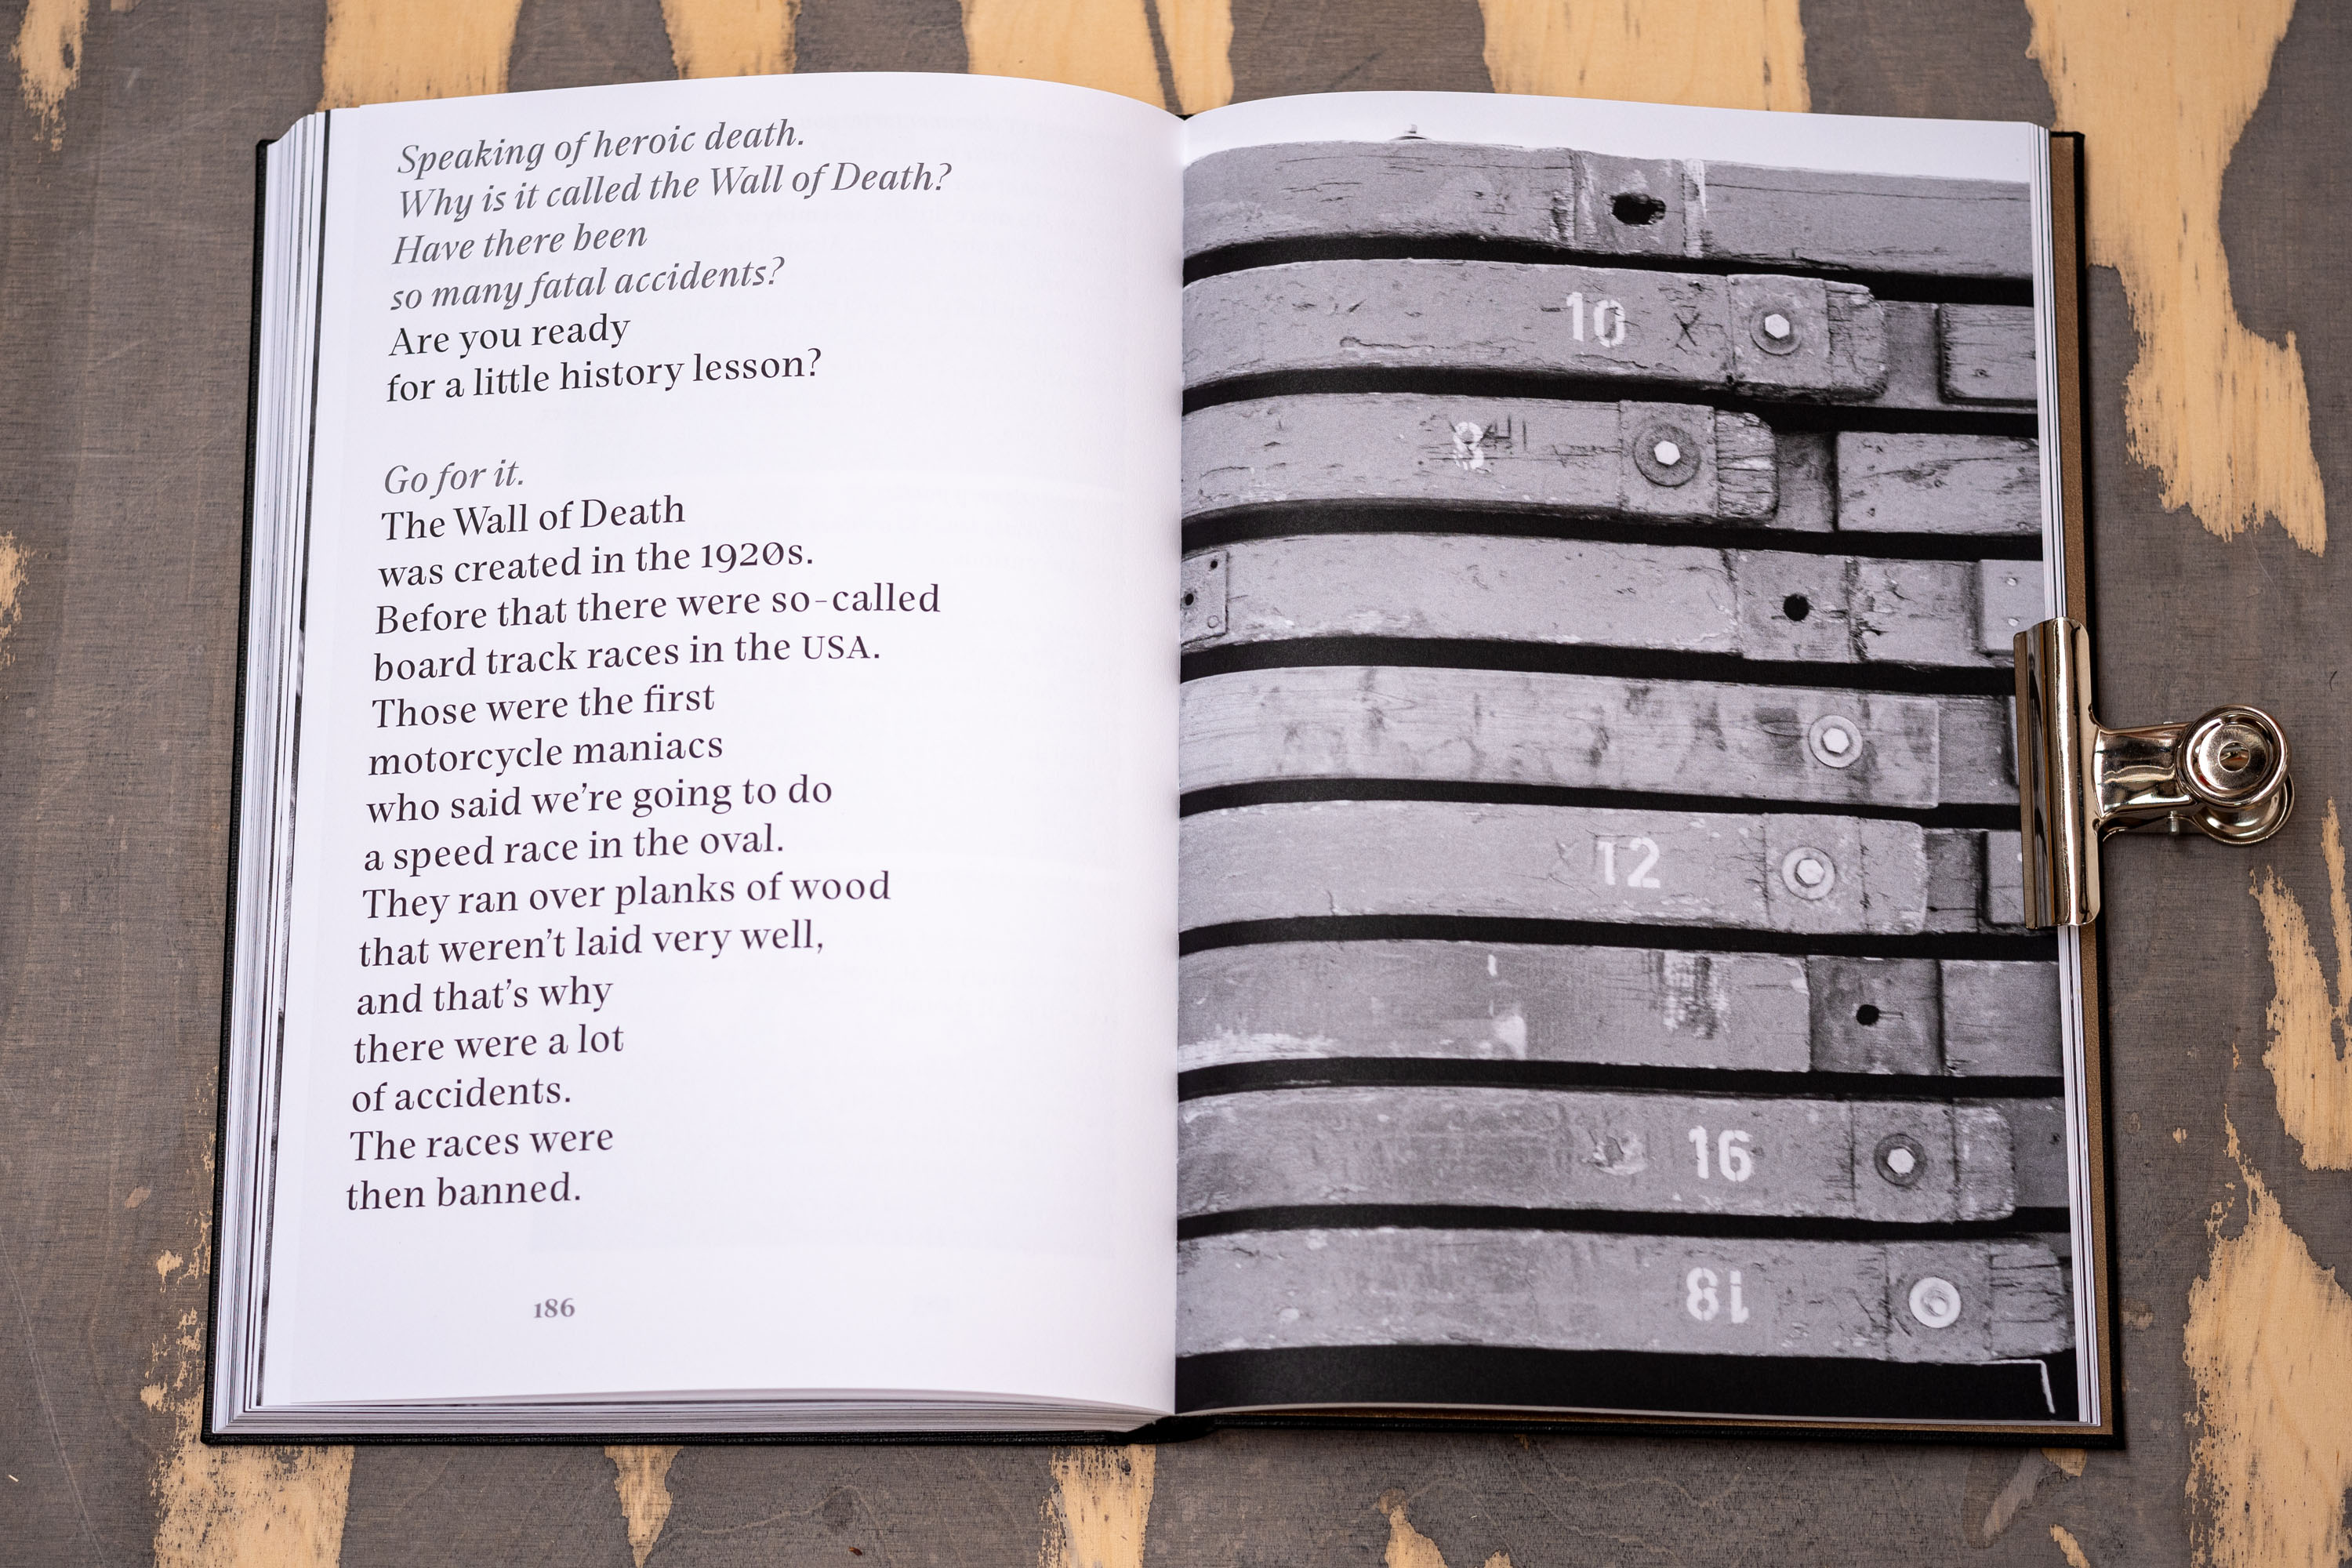 Speaking of heroic death.
Why is it called the Wall of Death?
Have there been
so many fatal accidents?
Are you ready
for a little history lesson?
Go for it.
The Wall of Death
was created in the 1920s.
Before that there were so-called
board track races in the USA.
Those were the first
motorcycle maniacs
who said we're going to do
a speed race in the oval.
They ran over planks of wood
that weren't laid very well,
and that's why
there were a lot
of accidents.
The races were
then banned.
186
10 X
8
12
16
18